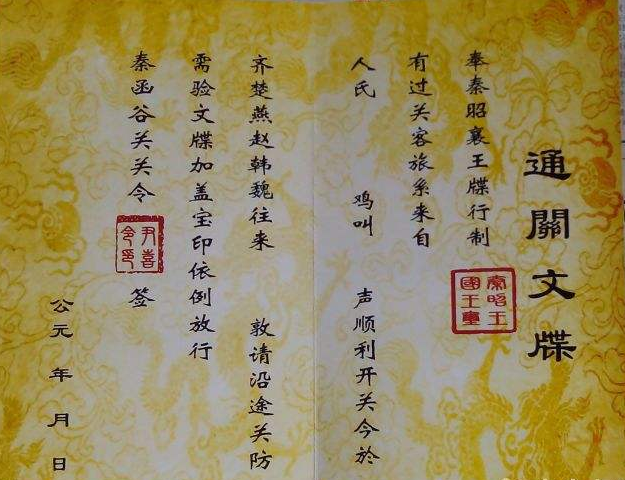 通關文牒
奉秦昭襄王牒行制
秦昭王
國王璽
有过关客旅系来自
人氏 鸡叫 声顺利开关今於
齐楚燕赵韩魏往来 敦请沿途关防
需验文牒加盖宝印依例放行
秦函谷关关令 签
尹喜
令印
公元 年 月 日